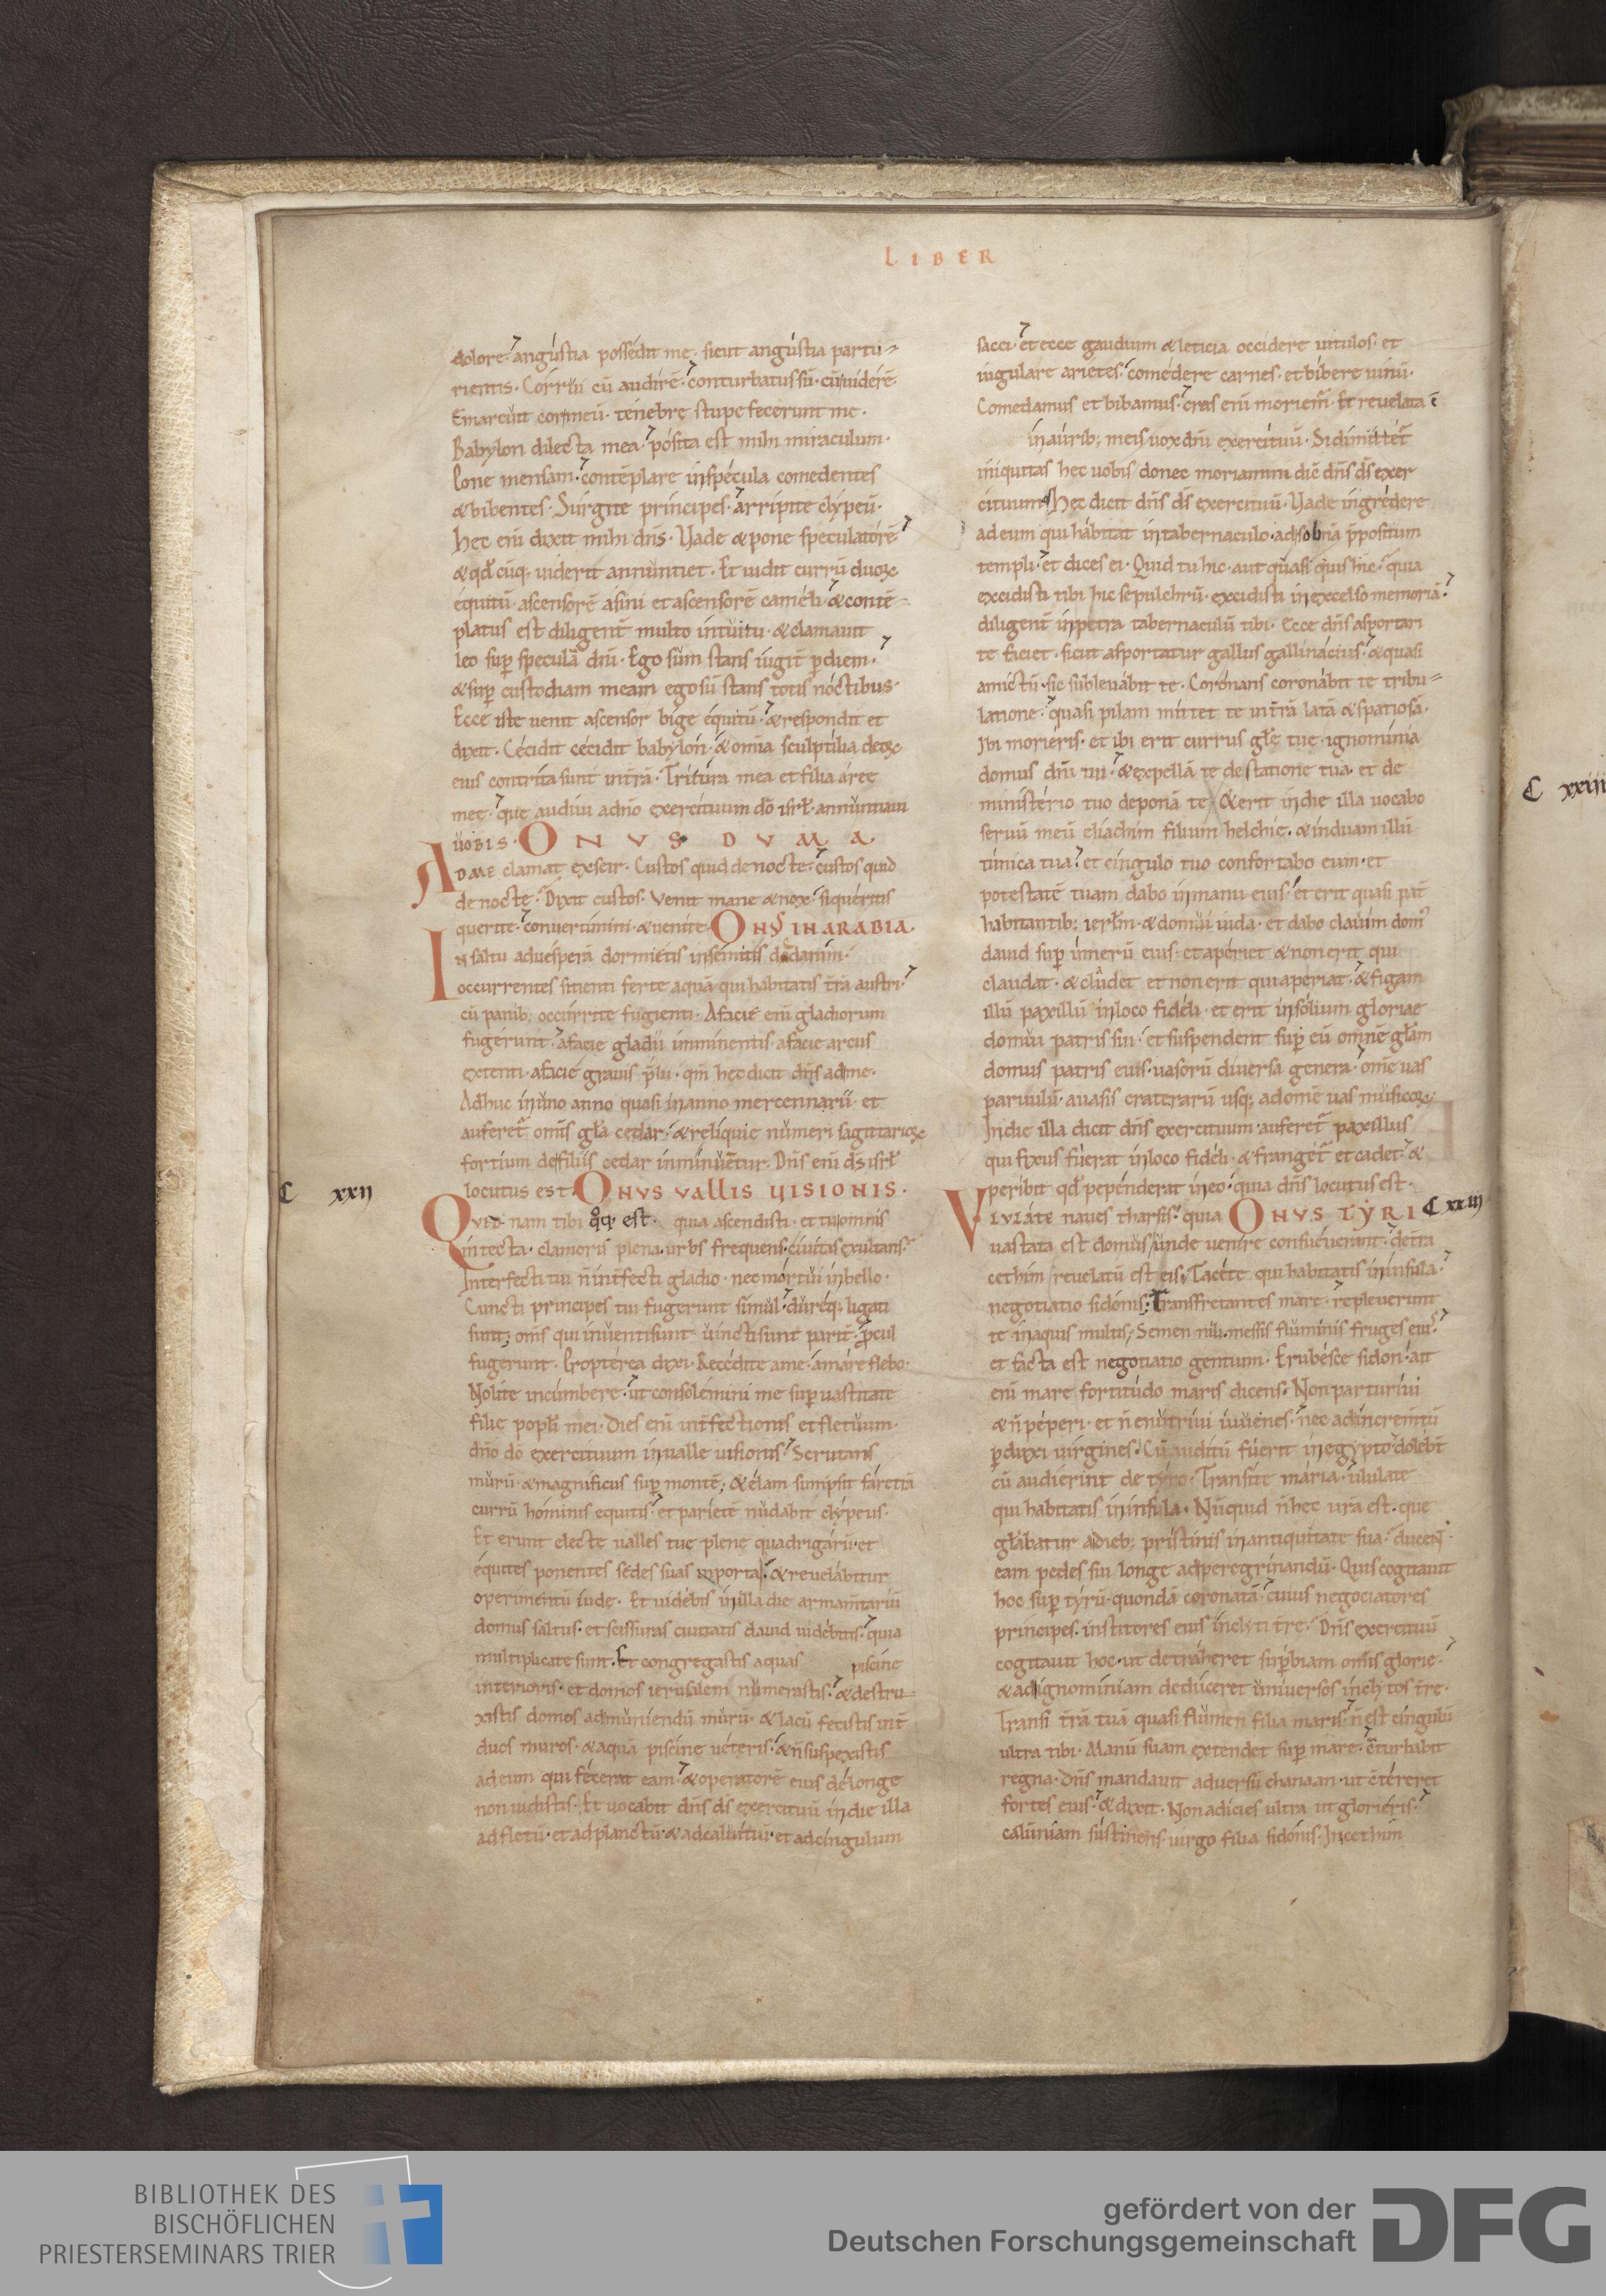 LIBER
dolore. angustia possedit me. sicut angustia partu-
rientis. Corrui cū audirē. conturbatus sū. cū uiderē.
Emarcuit cor meū. tenebrę stupefecerunt me.
Babylon dilecta mea. posita est mihi miraculum.
Pone mensam. contēplare in specula comedentes
& bibentes. Surgite principes. arripite clypeū.
Hec eni dixit mihi dn̄s. Uade & pone speculatorē
& qd cūq; uiderit annuntiet. Et uidit currū duoꝝ
equitū. ascensorē asini et ascensorē cameli. & contē-
platus est diligent̄ multo intuitu. & clamauit
leo sup speculā dn̄i. Ego sum stans iugit̄ p diem.
& sup custodiam meam ego sū stans totis noctibus.
Ecce iste uenit ascensor bigę equitū. & respondit et
dixit. Cecidit cecidit babylon. & omia sculptilia deoꝝ
eius contrita sunt in t̄rā. Tritura mea et filia areę
meę. que audiui a dn̄o exercituum dō isrl. annuntiaui
uobis. ONUS DUMA
AD ME clamat ex seir. Custos quid de nocte. custos quid
de nocte. Dixit custos. Venit mane & nox. si queritis
querite. conuertimini. & uenite. ONUS IN ARABIA.
IN saltu ad uesperā dormietis in semitis dodanim.
occurrentes sitienti ferte aquā qui habitatis t̄rā austri.
cū panib; occurrite fugienti. A facie eni gladiorum
fugerunt. a facie gladii imminentis. a facie arcus
extenti. a facie grauis p̄lii. qm̄ hec dicit dn̄s ad me.
Adhuc in uno anno quasi in anno mercennarii. et
auferet̄ omīs gla cedar. & reliquie numeri sagittarioꝝ
fortium de filiis cedar inminuentur. Dn̄s eni ds̄ isrl
locutus est. ONUS VALLIS VISIONIS.
C xxii
QUID nam tibi qq; est. quia ascendisti. et tu omnis
in tecta. clamoris plena. urbs frequens. ciuitas exultans.
Interfecti tui n̄ int̄fecti gladio. nec mortui in bello.
Cuncti principes tui fugerunt simul. dureq; ligati
sunt; om̄s qui inuenti sunt uincti sunt parit̄. pcul
fugerunt. Propterea dixi. Recedite a me. amare flebo.
Nolite incumbere. ut consolemini me sup uastitate
filię popli mei. Dies eni int̄fectionis et fletuum.
dn̄o dō exercituum in ualle uisionis. Scrutans
murū. & magnificus sup montē; & elam sumpsit faretrā
currū hominis equitis. et parietē nudabit clypeus.
Et erunt electę ualles tuę plenę quadrigarū. et
equites ponentes sedes suas in porta. & reuelabitur
operimentū iudę. Et uidebis in illa die armam̄tariū
domus saltus. et scissuras ciuitatis dauid uidebitis. quia
multiplicatę sunt. Et congregastis aquas piscinę
interioris. et domos ierusalem numerastis. & destru-
xistis domos ad muniendū murū. & lacū fecistis int̄
duos muros. & aquā piscinę ueteris. & n̄ suspexistis
ad eum qui fecerat eam. & operatorē eius de longe
non uidistis. Et uocabit dn̄s ds̄ exercituū in die illa
ad fletū. et ad planctū. & ad caluitiū. et ad cingulum
sacci. et ecce gaudium & leticia occidere uitulos. et
iugulare arietes. comedere carnes. et bibere uinū.
Comedamus et bibamus. cras eni moriem̄. Et reuelata ē
in aurib; meis uox dn̄i exercituū. Si dimittet̄
iniquitas hec uobis donec moriamini dic̄ dn̄s ds̄ exer
cituum. Hec dicit dn̄s ds̄ exercituū. Uade ingredere
ad eum qui habitat in tabernaculo. ad sobnā p̄positum
templi. et dices ei. Quid tu hic. aut quasi quis hic. quia
excidisti tibi hic sepulchrū. excidisti in excelso memoriā.
diligent̄ in petra tabernaculū tibi. Ecce dn̄s asportari
te faciet. sicut asportatur gallus gallinacius. & quasi
amictū. sic subleuabit te. Coronans coronabit te tribu-
latione. quasi pilam mittet te in t̄rā latā & spatiosā.
Ibi morieris. et ibi erit currus glę tuę. ignominia
domus dn̄i tui. & expellā te de statione tua. et de
ministerio tuo deponā te. & erit in die illa uocabo
seruū meū eliachim filium helchię. & induam illū
tunica tua. et cingulo tuo confortabo eum. et
potestatē tuam dabo in manu eius. et erit quasi pat̄
habitantib; ierlm. & domui iuda. et dabo clauim dom'
dauid sup umerū eius. et aperiet & non erit qui
claudat. & cludet et non erit qui aperiat. & figam
illū paxillū in loco fideli. et erit in solium gloriae
domui patris sui. et suspendent sup eū omnē glam
domus patris eius. uasorū diuersa genera. omē uas
paruulū. a uasis craterarū usq; ad omē uas musicoꝝ.
In die illa dicit dn̄s exercituum. auferet̄ paxillus
qui fixus fuerat in loco fideli. & franget̄ et cadet. &
peribit qd pependerat in eo. quia dn̄s locutus est.
ULULATE naues tharsis. quia ONUS TYRI
C xxiii
uastata est domus unde uenire consueuerant. de tra
cethim reuelatū est eis. Tacete qui habitatis in insula.
negotiatio sidonis; Transfretantes mare. repleuerunt
te in aquis multis; Semen nili. messis fluminis fruges eius.
et facta est negotiatio gentium. Erubesce sidon. ait
eni mare fortitudo maris dicens. Non parturiui
& n̄ peperi. et n̄ enutriui iuuenes. nec ad increm̄tū
pduxi uirgines. Cū auditū fuerit in egypto. dolebt̄
cū audierint de tyro. Transite maria. ululate
qui habitatis in insula. Nūquid n̄ hec ura est. que
glabatur a dieb; pristinis in antiquitate sua. ducent
eam pedes sui longe ad peregrinandū. Quis cogitauit
hoc sup tyrū. quondā coronatā. cuius negociatores
principes. institores eius inclyti t̄rę. Dn̄s exercituū
cogitauit hoc. ut detraheret supbiam omīs glorię.
& ad ignominiam deduceret uniuersos inclytos t̄rę.
Transi t̄rā tuā quasi flumen filia maris. n̄ est cingulū
ultra tibi. Manū suam extendet sup mare. c̄turbabit
regna. Dn̄s mandauit aduersū chanaan. ut c̄tereret
fortes eius. & dixit. Non adicies ultra ut glorieris.
calūniam sustinens uirgo filia sidonis. In cethim
C xxiiii
BIBLIOTHEK DES
BISCHÖFLICHEN
PRIESTERSEMINARS TRIER
gefördert von der
Deutschen Forschungsgemeinschaft
DFG